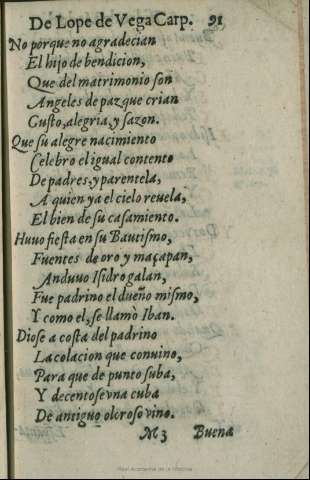 De Lope de Vega Carp. 91
No porque no agradecian
El hijo de bendicion,
Que del matrimonio son
Angeles de paz que crian
Gusto, alegria, y sazon.
Que su alegre nacimiento
Celebro el igual contento
De padres, y parentela,
A quien ya el cielo reuela,
El bien de su casamiento.
Huuo fiesta en su Bautismo,
Fuentes de oro y maçapan,
Anduuo Isidro galan,
Fue padrino el dueño mismo,
Y como el, se llamò Iban.
Diose a costa del padrino
La colacion que conuino,
Para que de punto suba,
Y decentose vna cuba
De antiguo oloroso vino.
M 3 Buena
Real Academia de la Historia